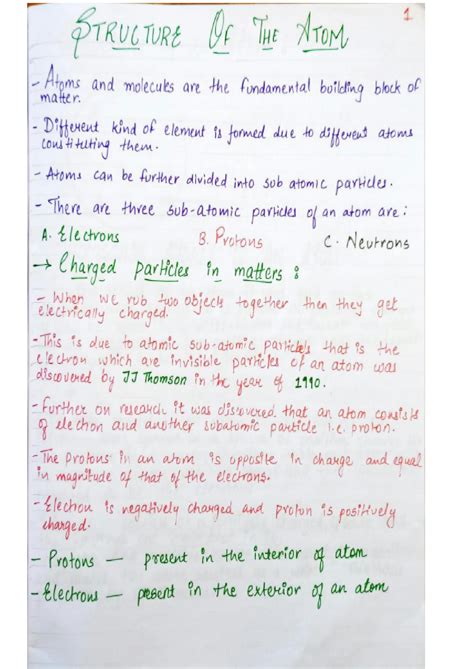 1
STRUCTURE OF THE ATOM
- Atoms and molecules are the fundamental building block of
matter.
- Different kind of element is formed due to different atoms
constituting them.
- Atoms can be further divided into sub atomic particles.
- There are three sub-atomic particles of an atom are:
A. Electrons B. Protons C. Neutrons
→ Charged particles in matters :
- When we rub two objects together then they get
electrically charged.
- This is due to atomic sub-atomic particles that is the
electron which are invisible particles of an atom was
discovered by JJ Thomson in the year of 1990.
- Further on research it was discovered that an atom consists
of electron and another subatomic particle i.e. proton.
- The protons in an atom is opposite in charge and equal
in magnitude of that of the electrons.
- Electron is negatively charged and proton is positively
charged.
- Protons — present in the interior of atom
- Electrons — present in the exterior of an atom